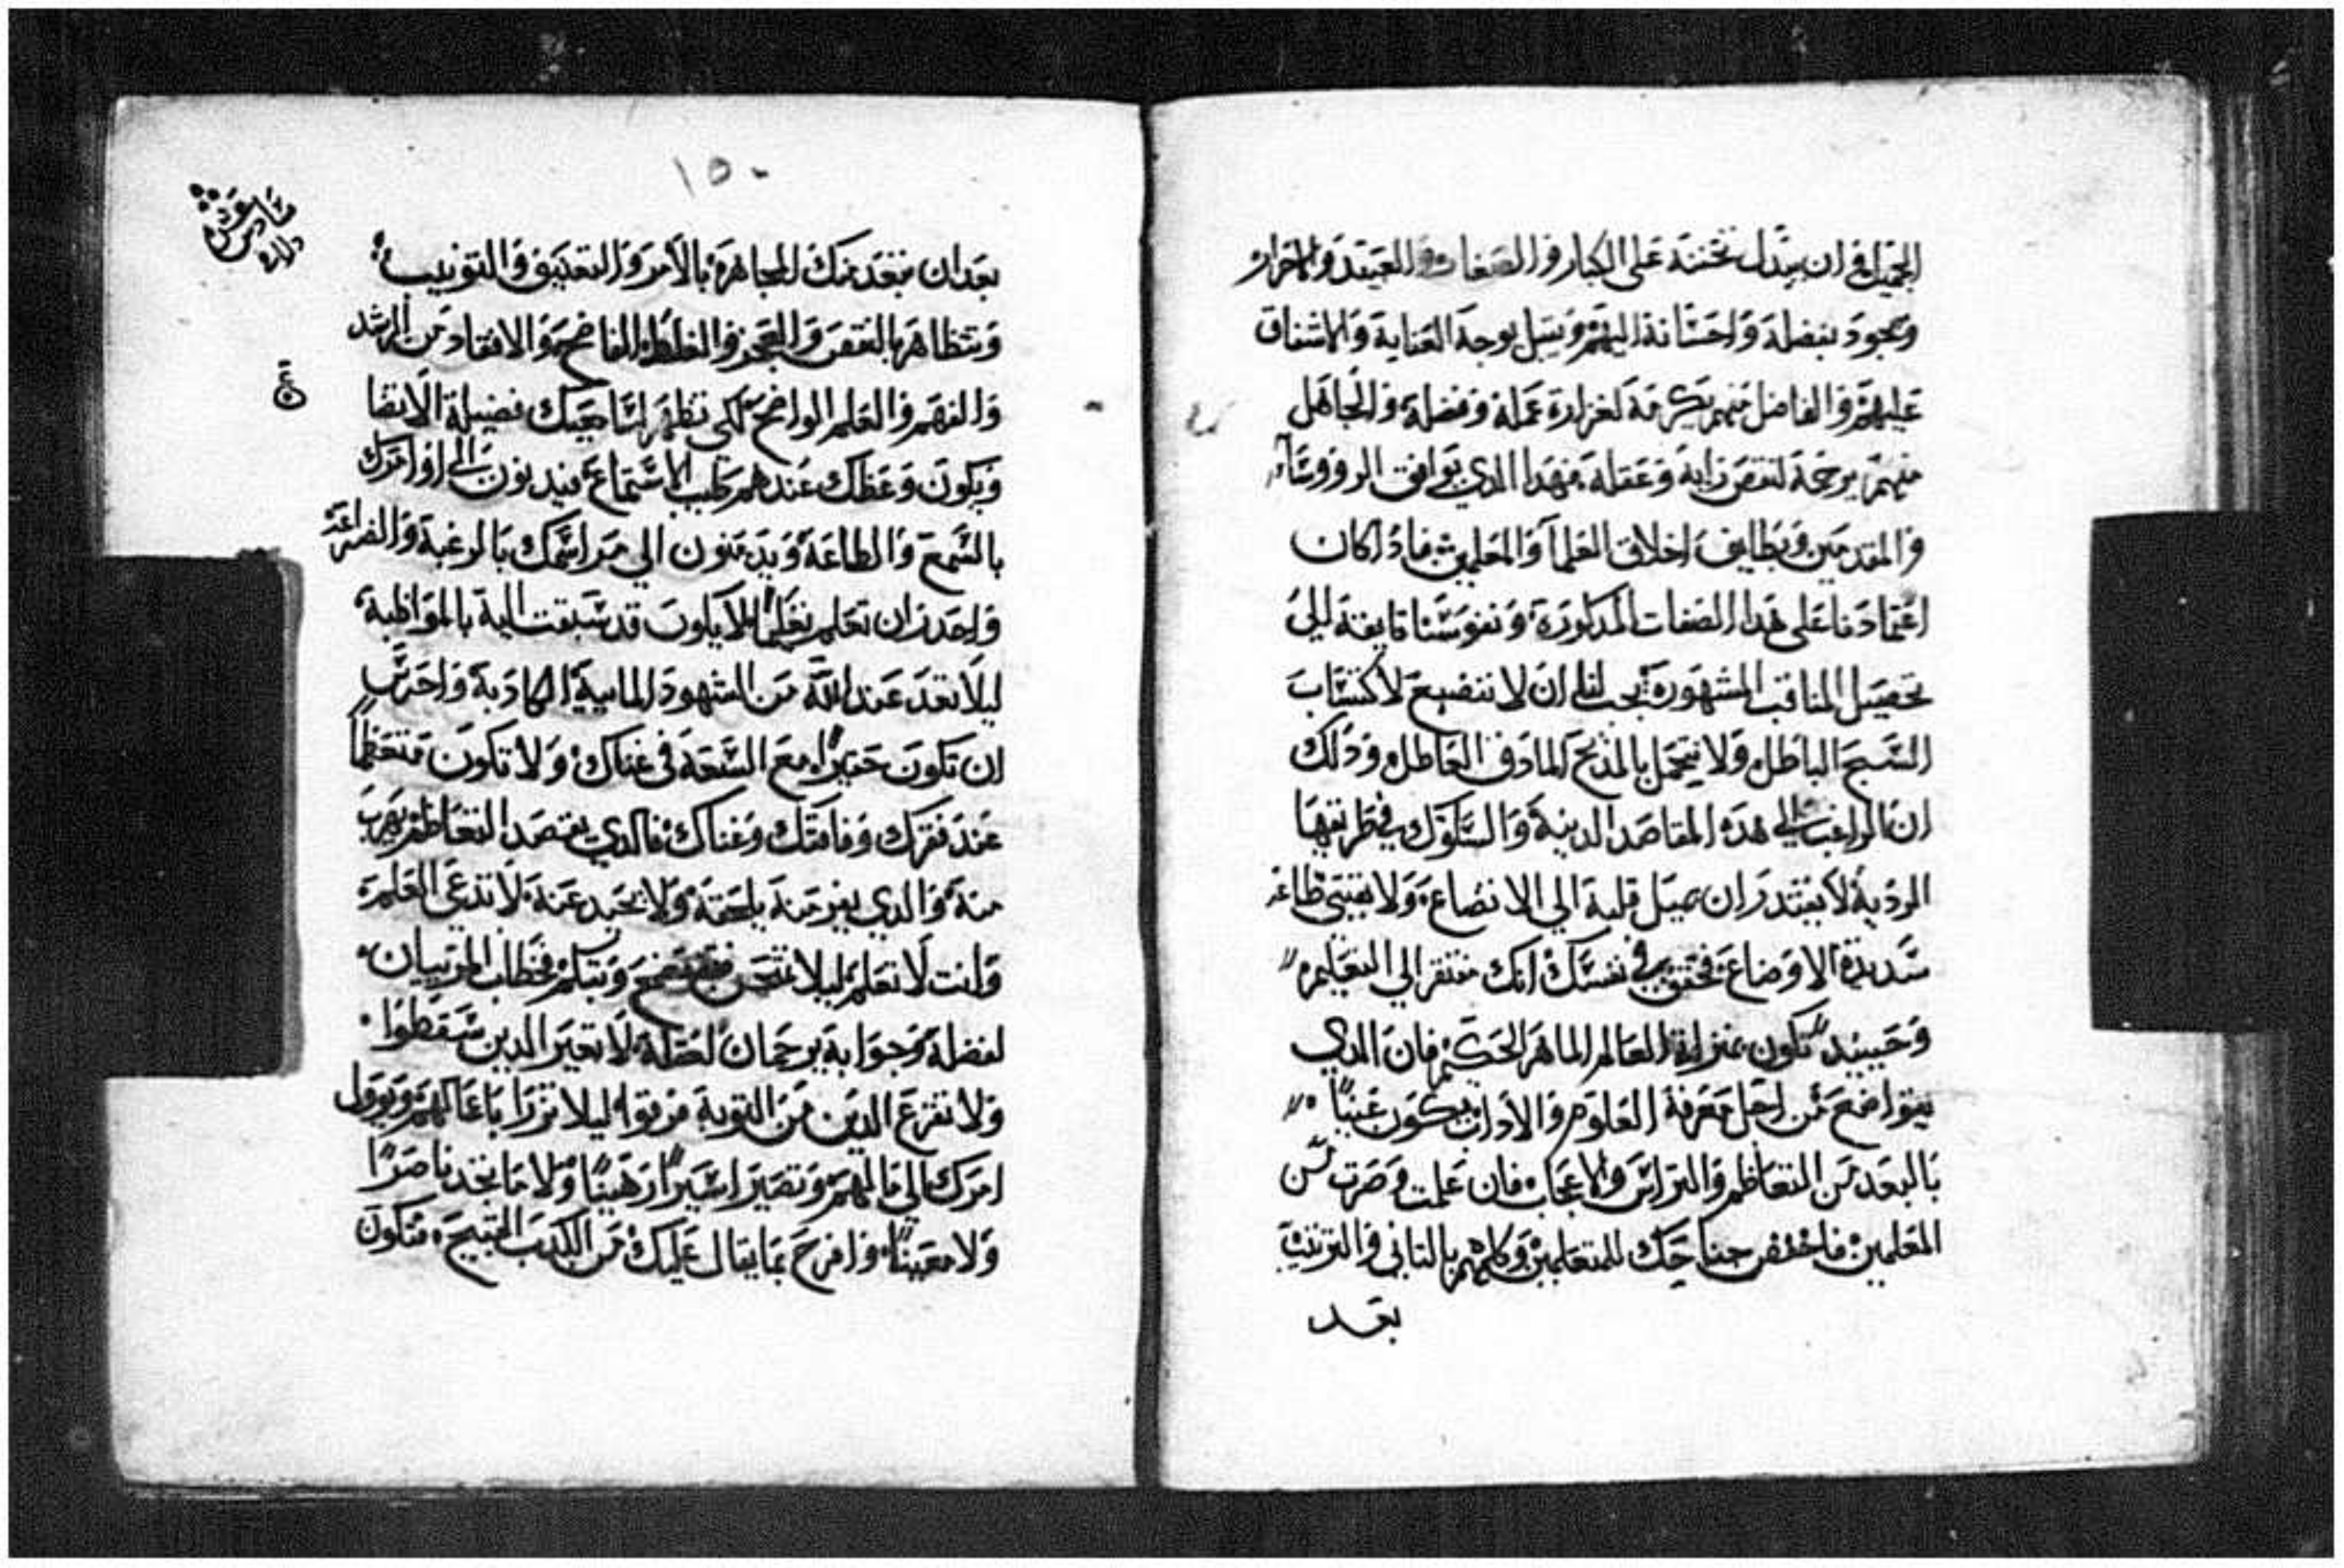 الجميل في ان يبدل تحننه على الكبار والصغار والعبيد والاحرار
ويجود بفضله واحسانه اليهم ويسبل بوجه العناية والاشفاق
عليهم والفاضل منهم يكرمه لغزارة عمله وفضله والجاهل
منهم يرحمه لنقص رايه وعقله فهدا الدي يوافق الرووساء
والمقدمين ويطابق اخلاق العلما والمعلمين فادا كان
اعتمادنا على هدا الصفات المدكورة ونفوسنا تايقة الي
تحصيل المناقب المشهورة يجب لنا ان لا نتضيع لاكتساب
السبح الباطل ولا نتجمل بالمديح المادق العاطل ودلك
ان الراغب الي هده المقاصد الدينية والسلوك في طريقها
الردية لا يقتدر ان يميل قلبه الي الاتضاع ولا يقتني طاعة
سديدة الاوضاع فحقق في نفسك انك مفتقر الي التعليم
وحينيد تكون بمنزلة العالم الماهر الحكيم فان الدي
يتواضع من اجل معرفة العلوم والاداب يكون غنيا
بالبعد من التعاظم والتراس والاعجاب فان علمت وصرت من
المعلمين فاخفض جناحك للمتعلمين وكلمهم بالتاني والترتيب
بعد
١٥٠
سادس عشر
بعد ان تبعد منك المجاهرة بالامر والتعنيف والتونيب
وتتظاهر بالنقص والعجز والغلط الفاضح والافتقاد من الرشد
والفهم والعلم الواضح لكي تظهر لسامعيك فضيلة الاتضا
ع
ويكون وعظك عندهم طيب الاستماع فيدنون الي اوامرك
بالسمع والطاعة ويدعنون الي مراسمك بالرغبة والضراعة
واحدر ان تعلم تعليما لا يكون قد سبقت اليه بالمواظبة
ليلا تعد عند الله من الشهود المايية الكادبة واحرس
ان تكون حقيرا مع السعة في غناك ولا تكون متعظما
عند فقرك وفاقتك وعناك فالدي يقصد التعاظم يهرب
منه والدي يفر منه يلحقه ولا يحيد عنه لا تدعي العلم
وانت لا تعلم ليلا تمتحن فتفتضح وتتكلم فخطاب المرء بيان
لفضله وجوابه برحمان لعقله لا تعير الدين سقطوا
ولا تفزع الدين من التوبة مرقوا ليلا تزرا باعمالهم ويوول
امرك الي مالهم وتصير اسيرا رهينا ولا ما تجد ناصرا
ولا معينا وافرح بما يقال عليك من الكدب القبيح فتكون